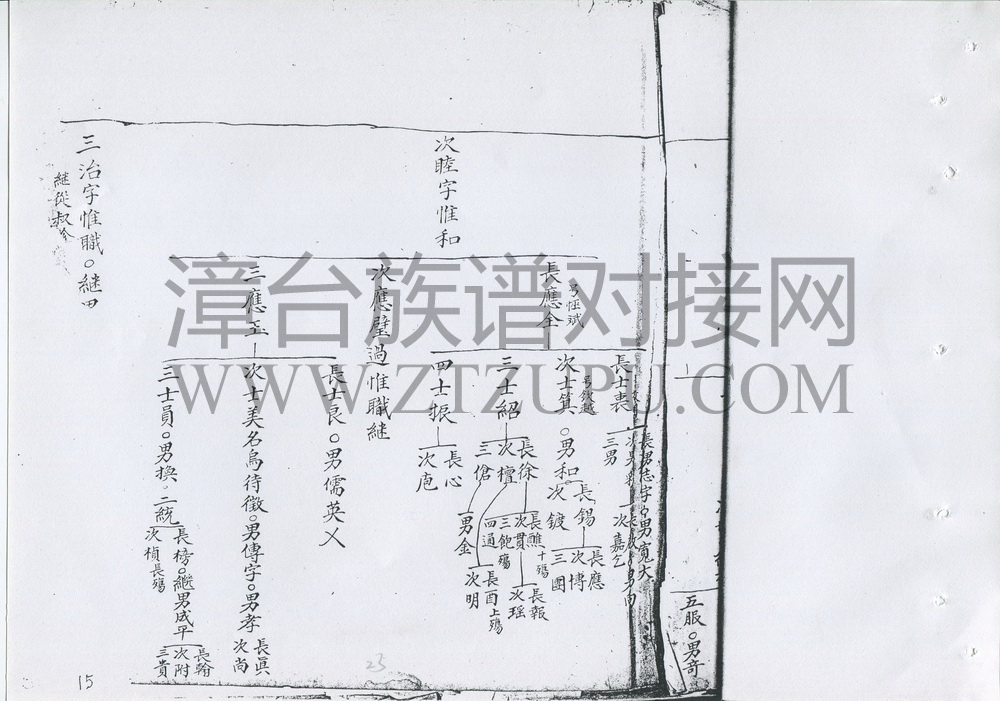 五服○男奇
次睦字惟和
長應全
長士衷
長男志字○男寬大
三男
次嘉乞
次士箕○男和
長錫
次鍍
長應
次博
三團
三士紹
長徐
次檀
三傖
長醮十殤
次貫
三飽殤
四通
長報
次瑶
長酉上殤
次明
男金
四士振
長心
次庖
次應璧過惟職継
三應玉
長士良○男儒英乂
次士美名烏待徵○男傳字○男孝
長眞
次尚
三士員○男換○二統
長榜○繼男成平
次楨長殤
長翰
次附
三貴
三治字惟職○継田
継從叔全
15
23
漳台族谱对接网
WWW.ZTZUPU.COM